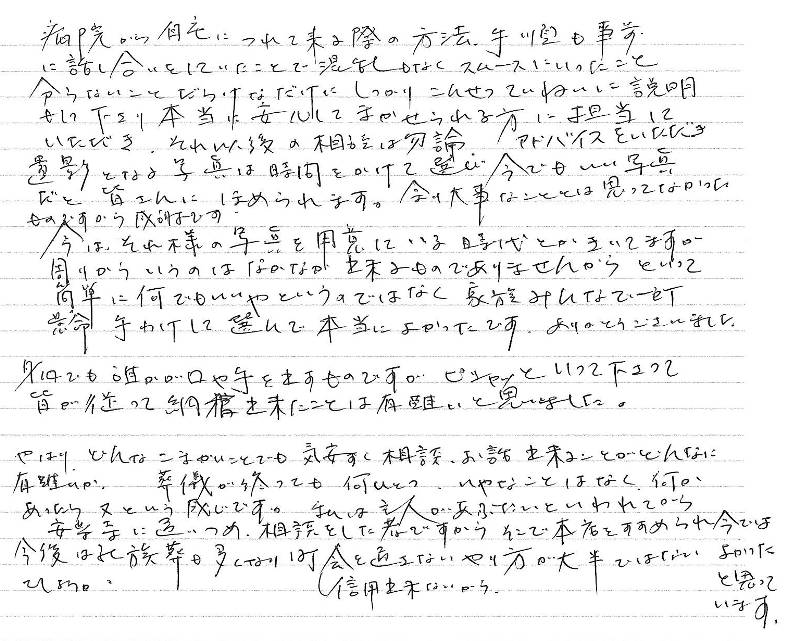 病院から自宅につれて来る際の方法、手順も事前
に話し合いをしていたことで混乱もなくスムースにいったこと
分らないことだらけなだけにしっかりこんせつていねいに説明
して下さり本当に安心してまかせられる方に担当して
いただき、それ以後の相談は勿論、アドバイスをいただき
遺影となる写真は時間をかけて選び今でもいい写真
だと皆さんにほめられます。余り大事なこととは思ってなかった
ものですから成功です。
今は、それ様の写真を用意している時代とかきいてますが
周りからいうのはなかなか出来るものでありませんからといって
簡単に何でもいいやというのではなく家族みんなで一生
懸命手わけして選んで本当によかったです。ありがとうございました。
何でも誰かが口や手を出すものですがピシャッといって下さって
皆が従って納得出来たことは有難いと思いました。
やはり、どんなこまかいことでも気安すく相談、お話出来ることがどんなに
有難いか。葬儀が終っても何ひとつ、いやなことはなく、何か
あったら又という感じです。私は主人があぶないといわれてから
に追いつめ、相談をした者ですからそこで本店をすすめられ今では
よかった
と思って
います。
今後は家族葬も多くなり町会を通さないやり方が大半ではない
でしょうか。
信用出来ないから。